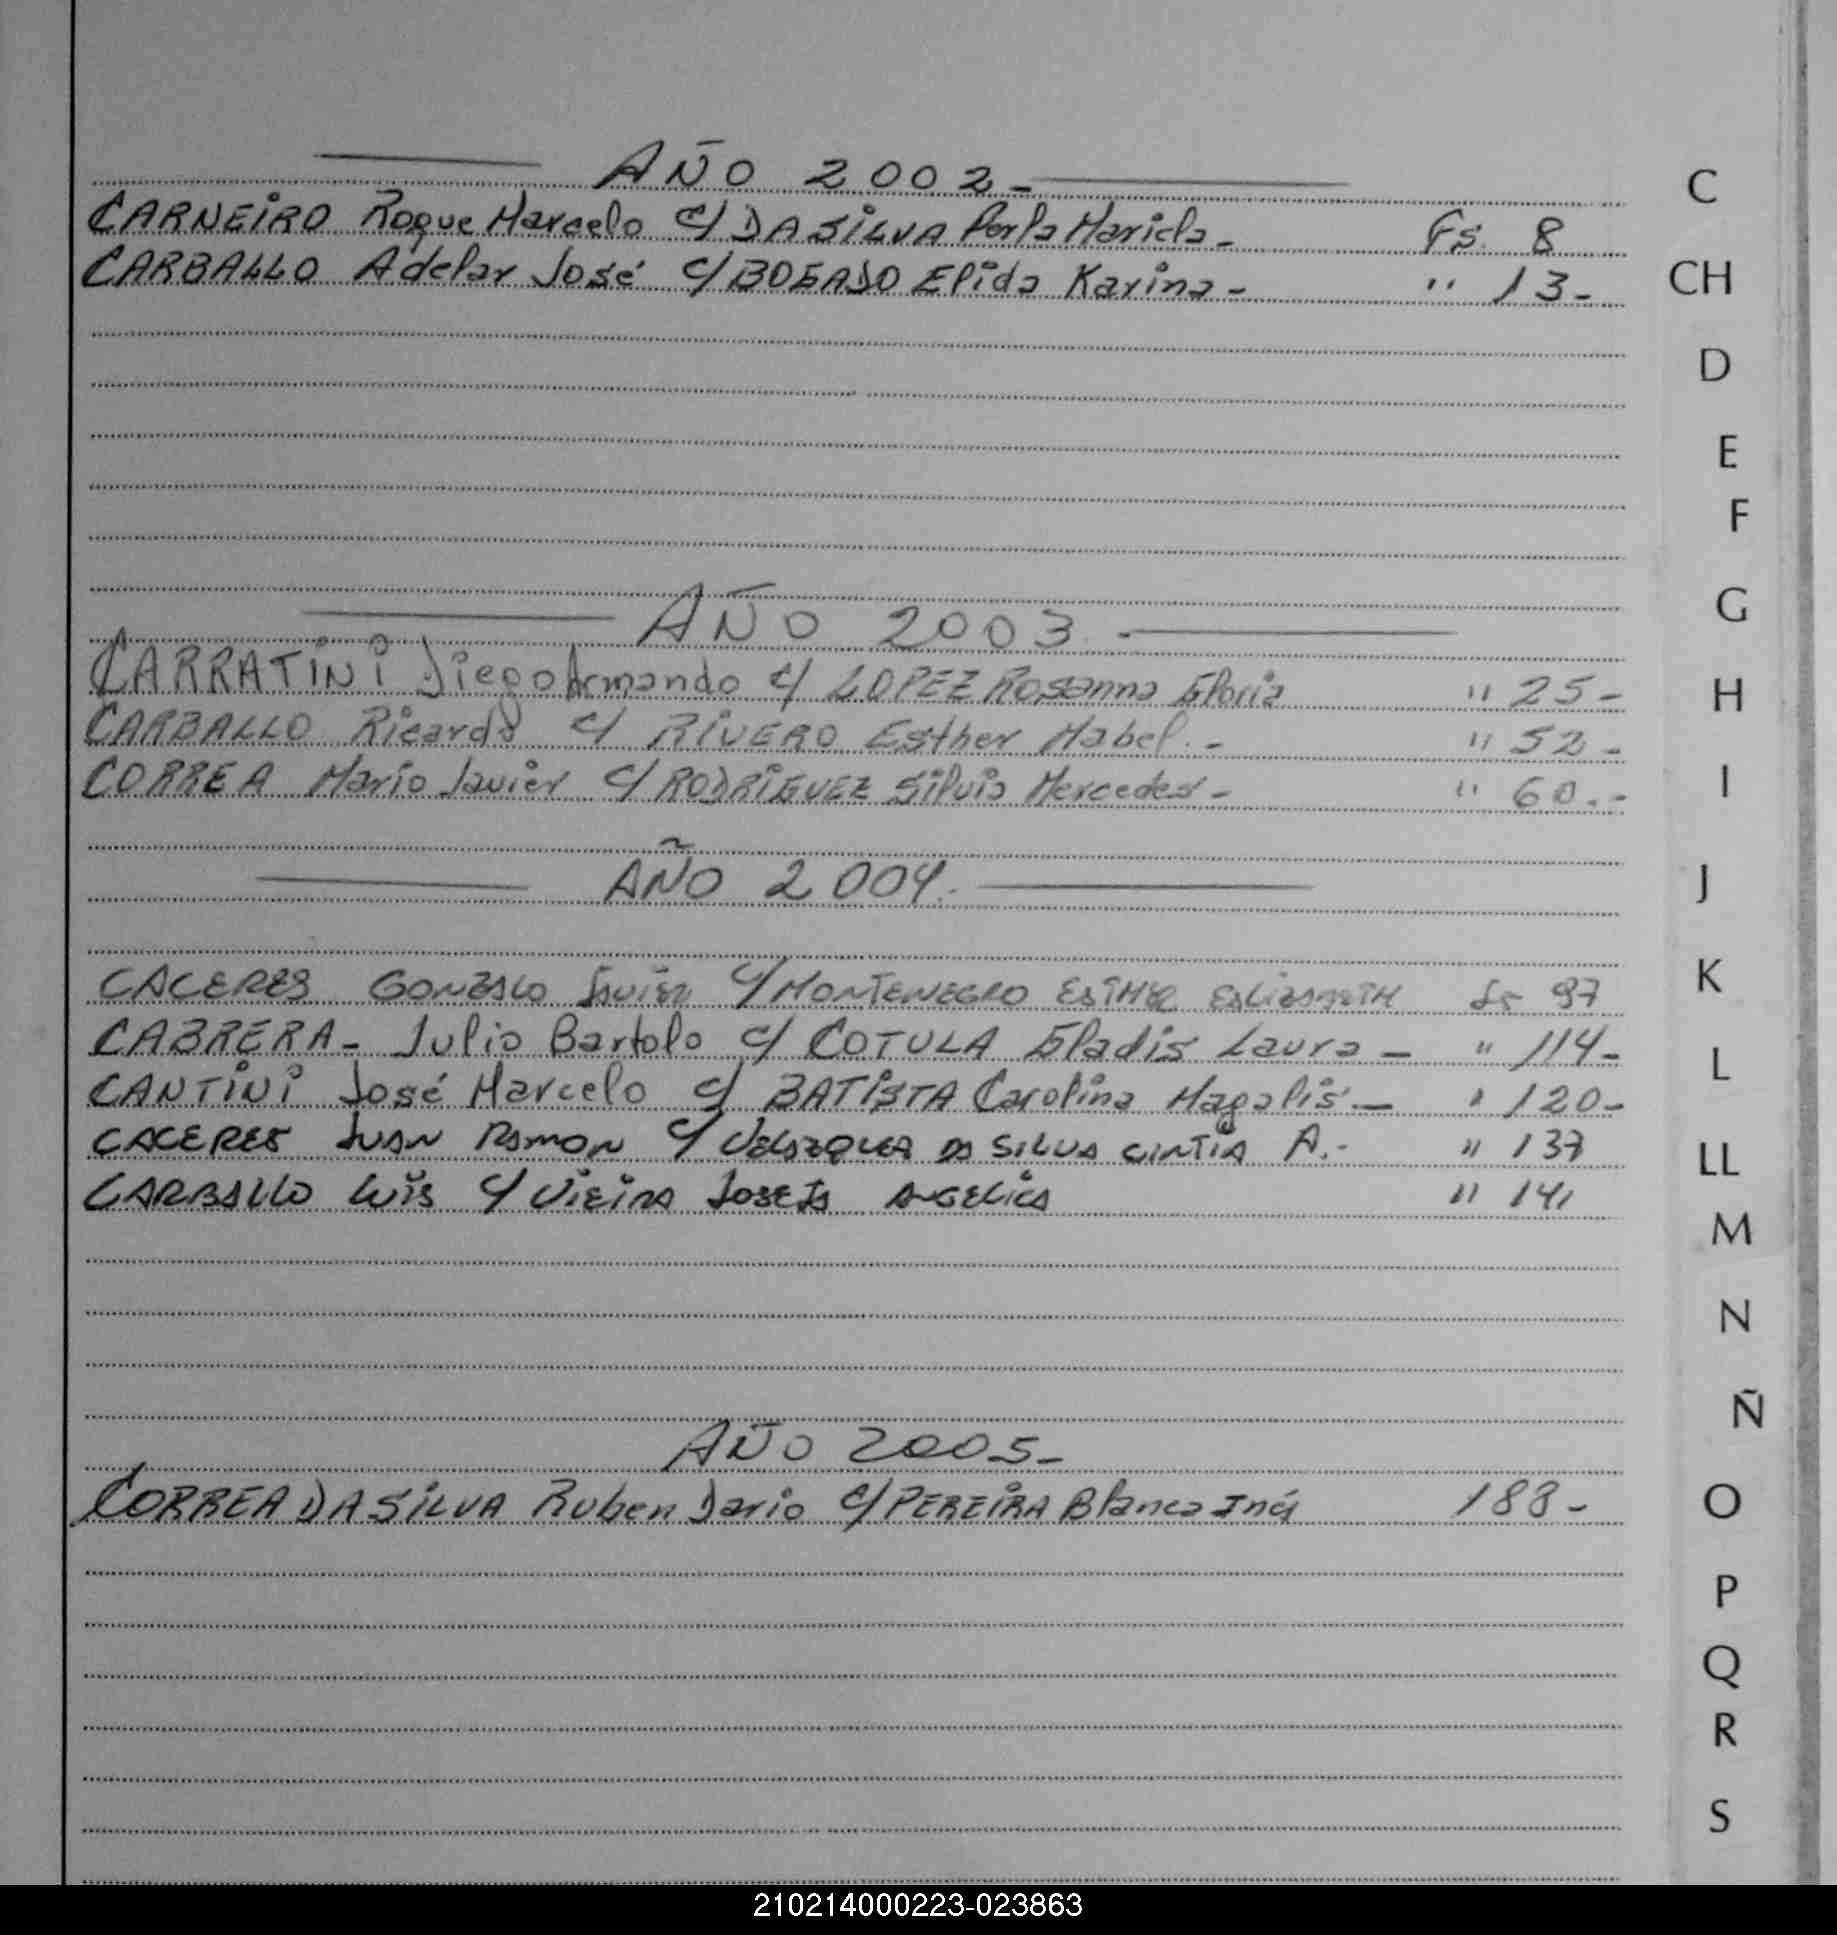 AÑO 2002-
CARNEIRO Roque Marcelo c/ DA SILVA Perla Mariela- Fs. 8
CARBALLO Adelar José c/ BOGADO Elida Karina- " 13-
AÑO 2003.-
CARRATINI Diego Armando c/ LOPEZ Rosanna Gloria " 25-
CARBALLO Ricardo c/ RIVERO Esther Mabel.- " 52-
CORREA Mario Javier c/ RODRIGUEZ Silvia Mercedes- " 60.-
AÑO 2004.
CACERES GONZALO Javier c/ MONTENEGRO ESTHER fs 97
CABRERA- Julio Bartolo c/ COTULA Gladis Laura- " 114-
CANTINI José Marcelo c/ BATISTA Carolina Magalis- " 120-
CACERES JUAN RAMON c/ VELAZQUEZ DA SILVA CINTIA A.- " 137
CARBALLO LUIS c/ VIEIRA JOSEFA ANGELICA " 141
AÑO 2005-
CORREA DA SILVA Ruben Dario c/ PEREIRA Blanca Inés 188-
C
CH
D
E
F
G
H
I
J
K
L
LL
M
N
Ñ
O
P
Q
R
S
210214000223-023863